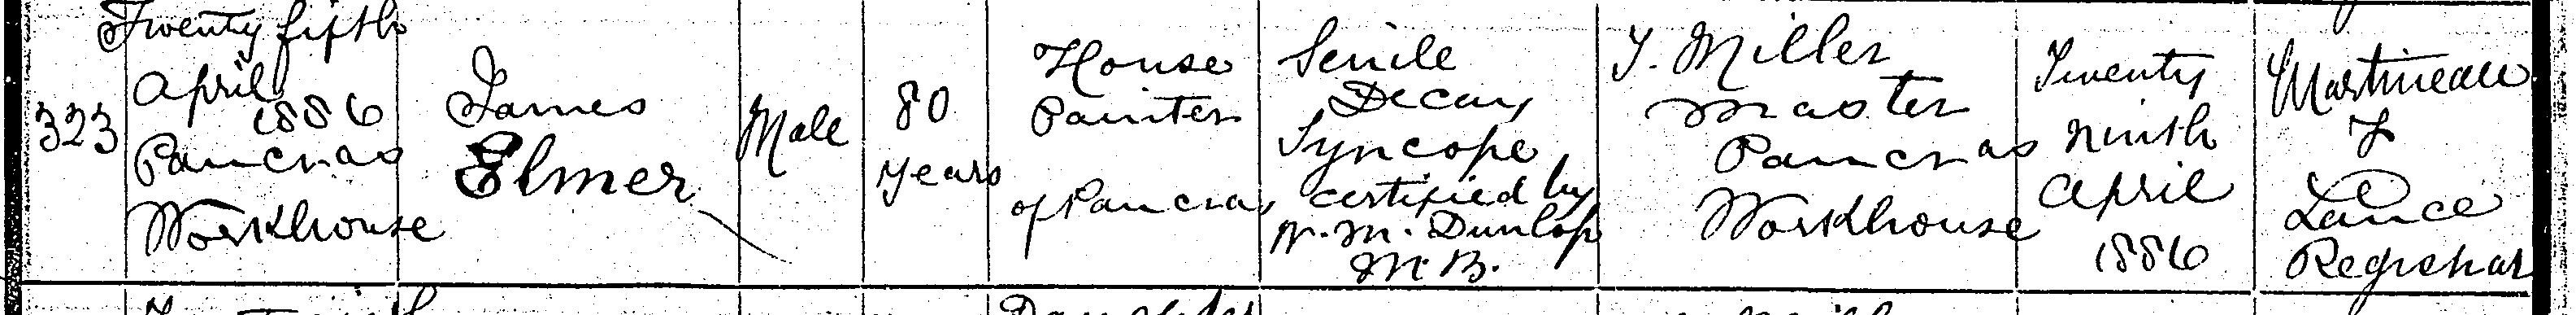 323
Twenty fifth
April
1886
Pancras
Workhouse
James
Elmer
Male
80
years
House
Painter
of Pancras
Senile
Decay
Syncope
certified by
W. M. Dunlop
M.B.
Y. Miller
Master
Pancras
Workhouse
Twenty
ninth
April
1886
Martineau
F
Lance
Registrar